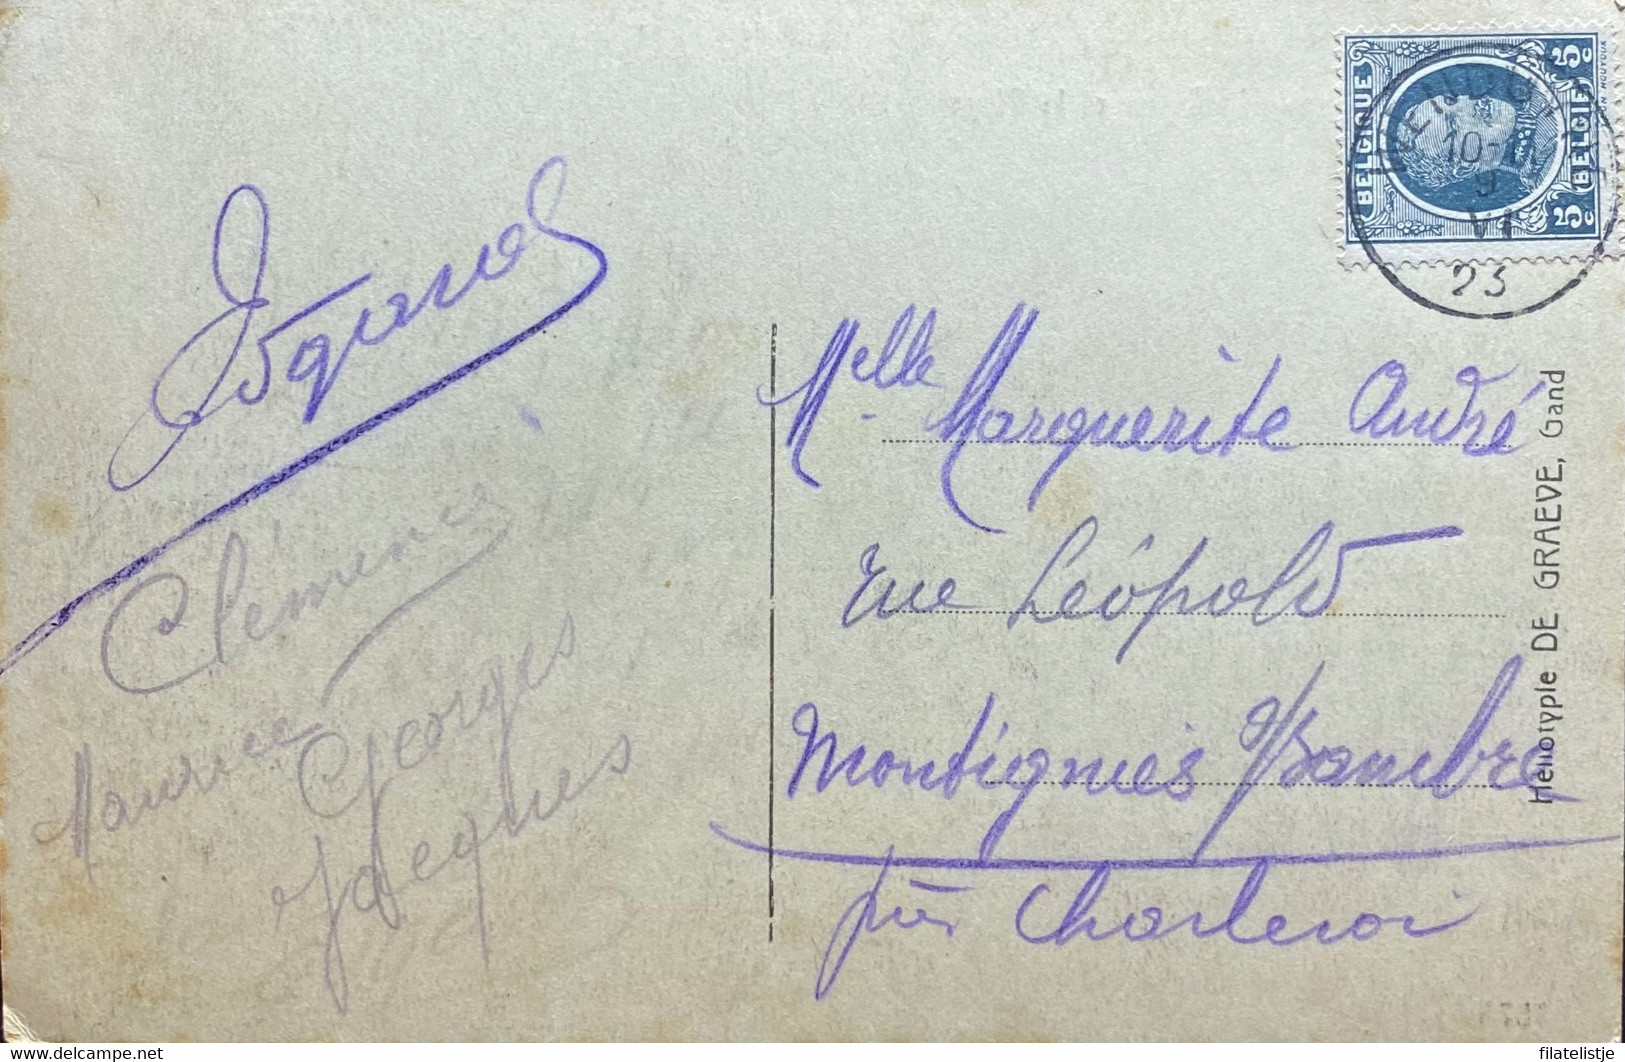 BELGIQUE
BELGIE
5c
5c
10-11
9
VI
23
Clémence
Maurice
Georges
Jacques
Melle Marguerite André
rue Léopold
Montignies s/Sambre
près Charleroi
Héliotypie DE GRAEVE, Gand
© filatelistje for Delcampe.net
filatelistje